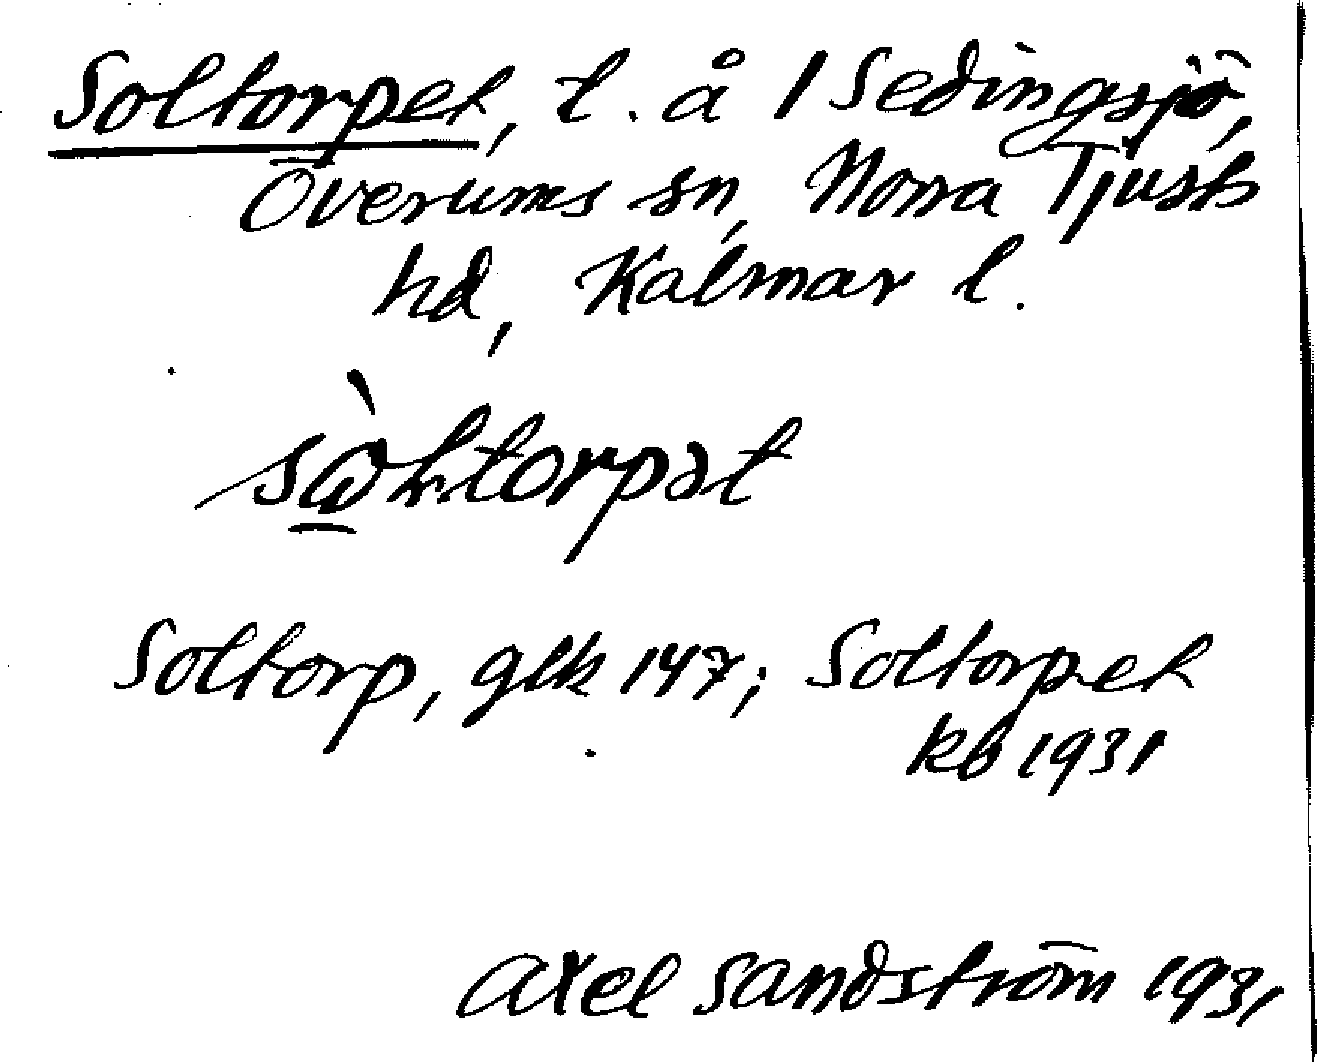 Soltorpet, t. å 1 Sedingsjö,
Överums sn, Norra Tjusts
hd, Kalmar l.
Soltorp, glk 147; Soltorpet
kb 1931
Axel Sandström 1931